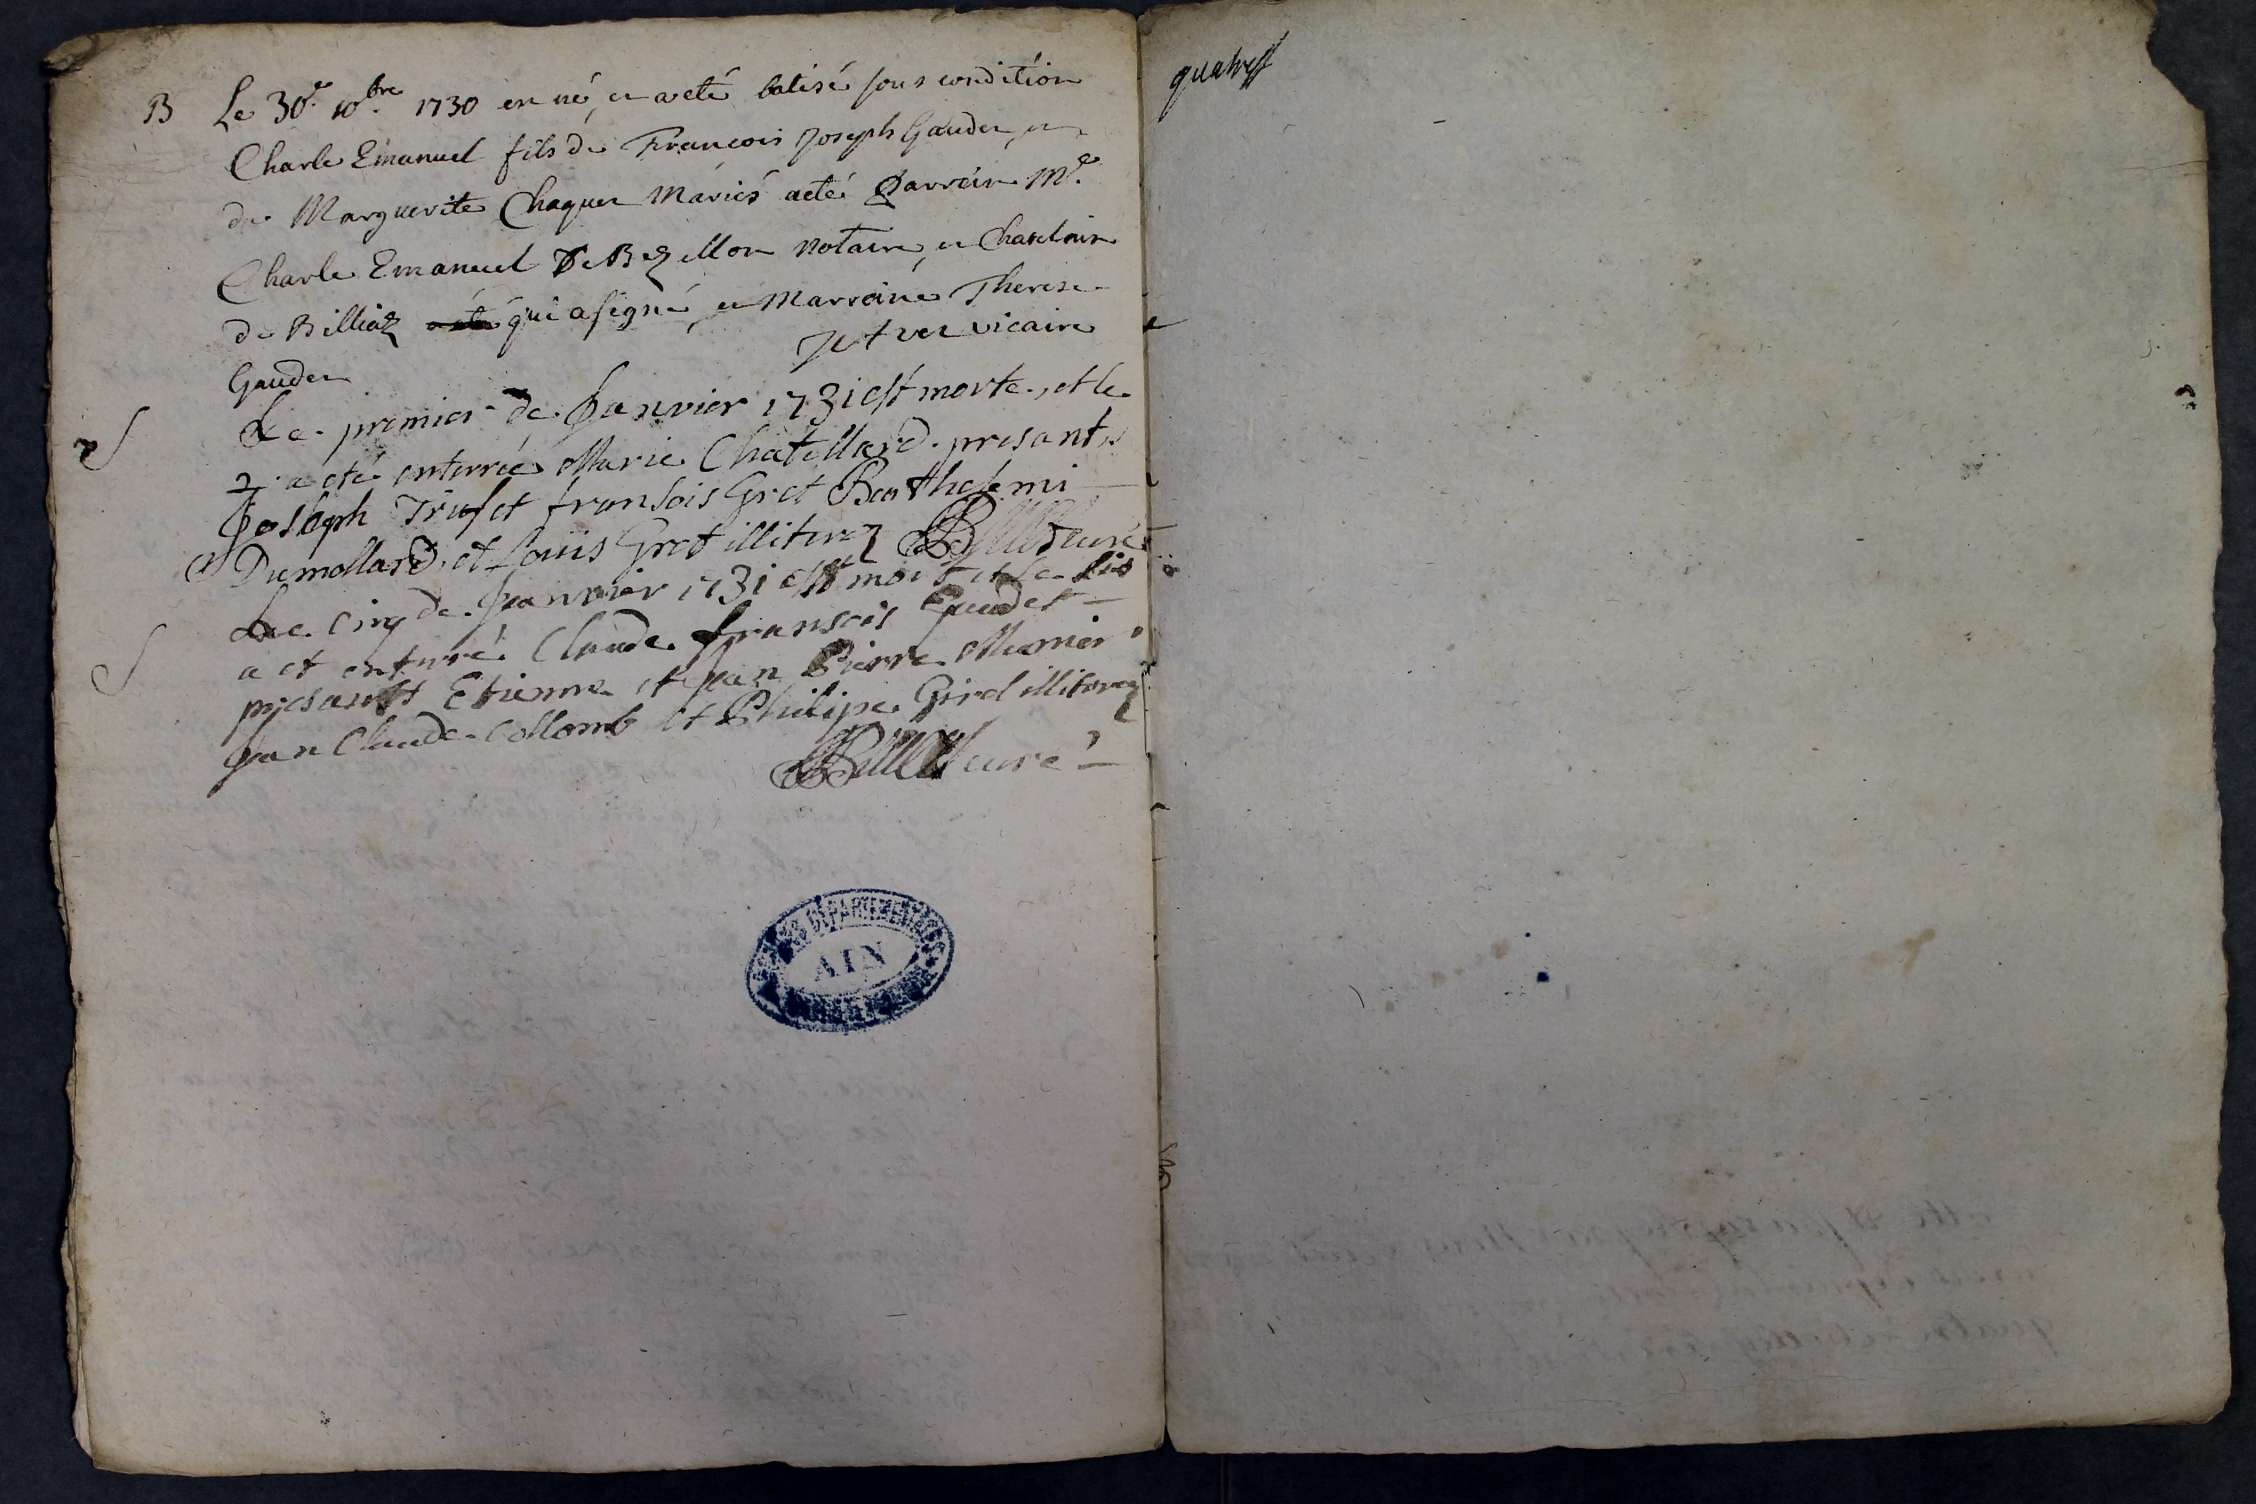 B Le 30.e 10.bre 1730 en né, en aeté batisé sous condition
Charle Emanuel fils de François Joseph Gauden, en
de Marguerite Chaquen Mariés aeté parrain M.e
Charle Emanuel De Bezellon Notaire, en Chatelain
de Billiaz qui a signé, en Marraine Therese
Gauden vicaire
S Le premier de Janvier 1731 est morte, et le
2 a eté enterrée Marie Chatellard presants
Joseph Trufet fransois Gret Barthelemi
Dumollard, et Louis Gret illiterez curé
S Le cinq de Janvier 1731 est mort et le
a et enterré Claude fransois Gaudet
presants Etienne et Jan Pierre Munier
Jan Claude Collomb et Philipe Girel illiterez
curé
ARCHIVES DEPARTEMENTALES
AIN
quatre